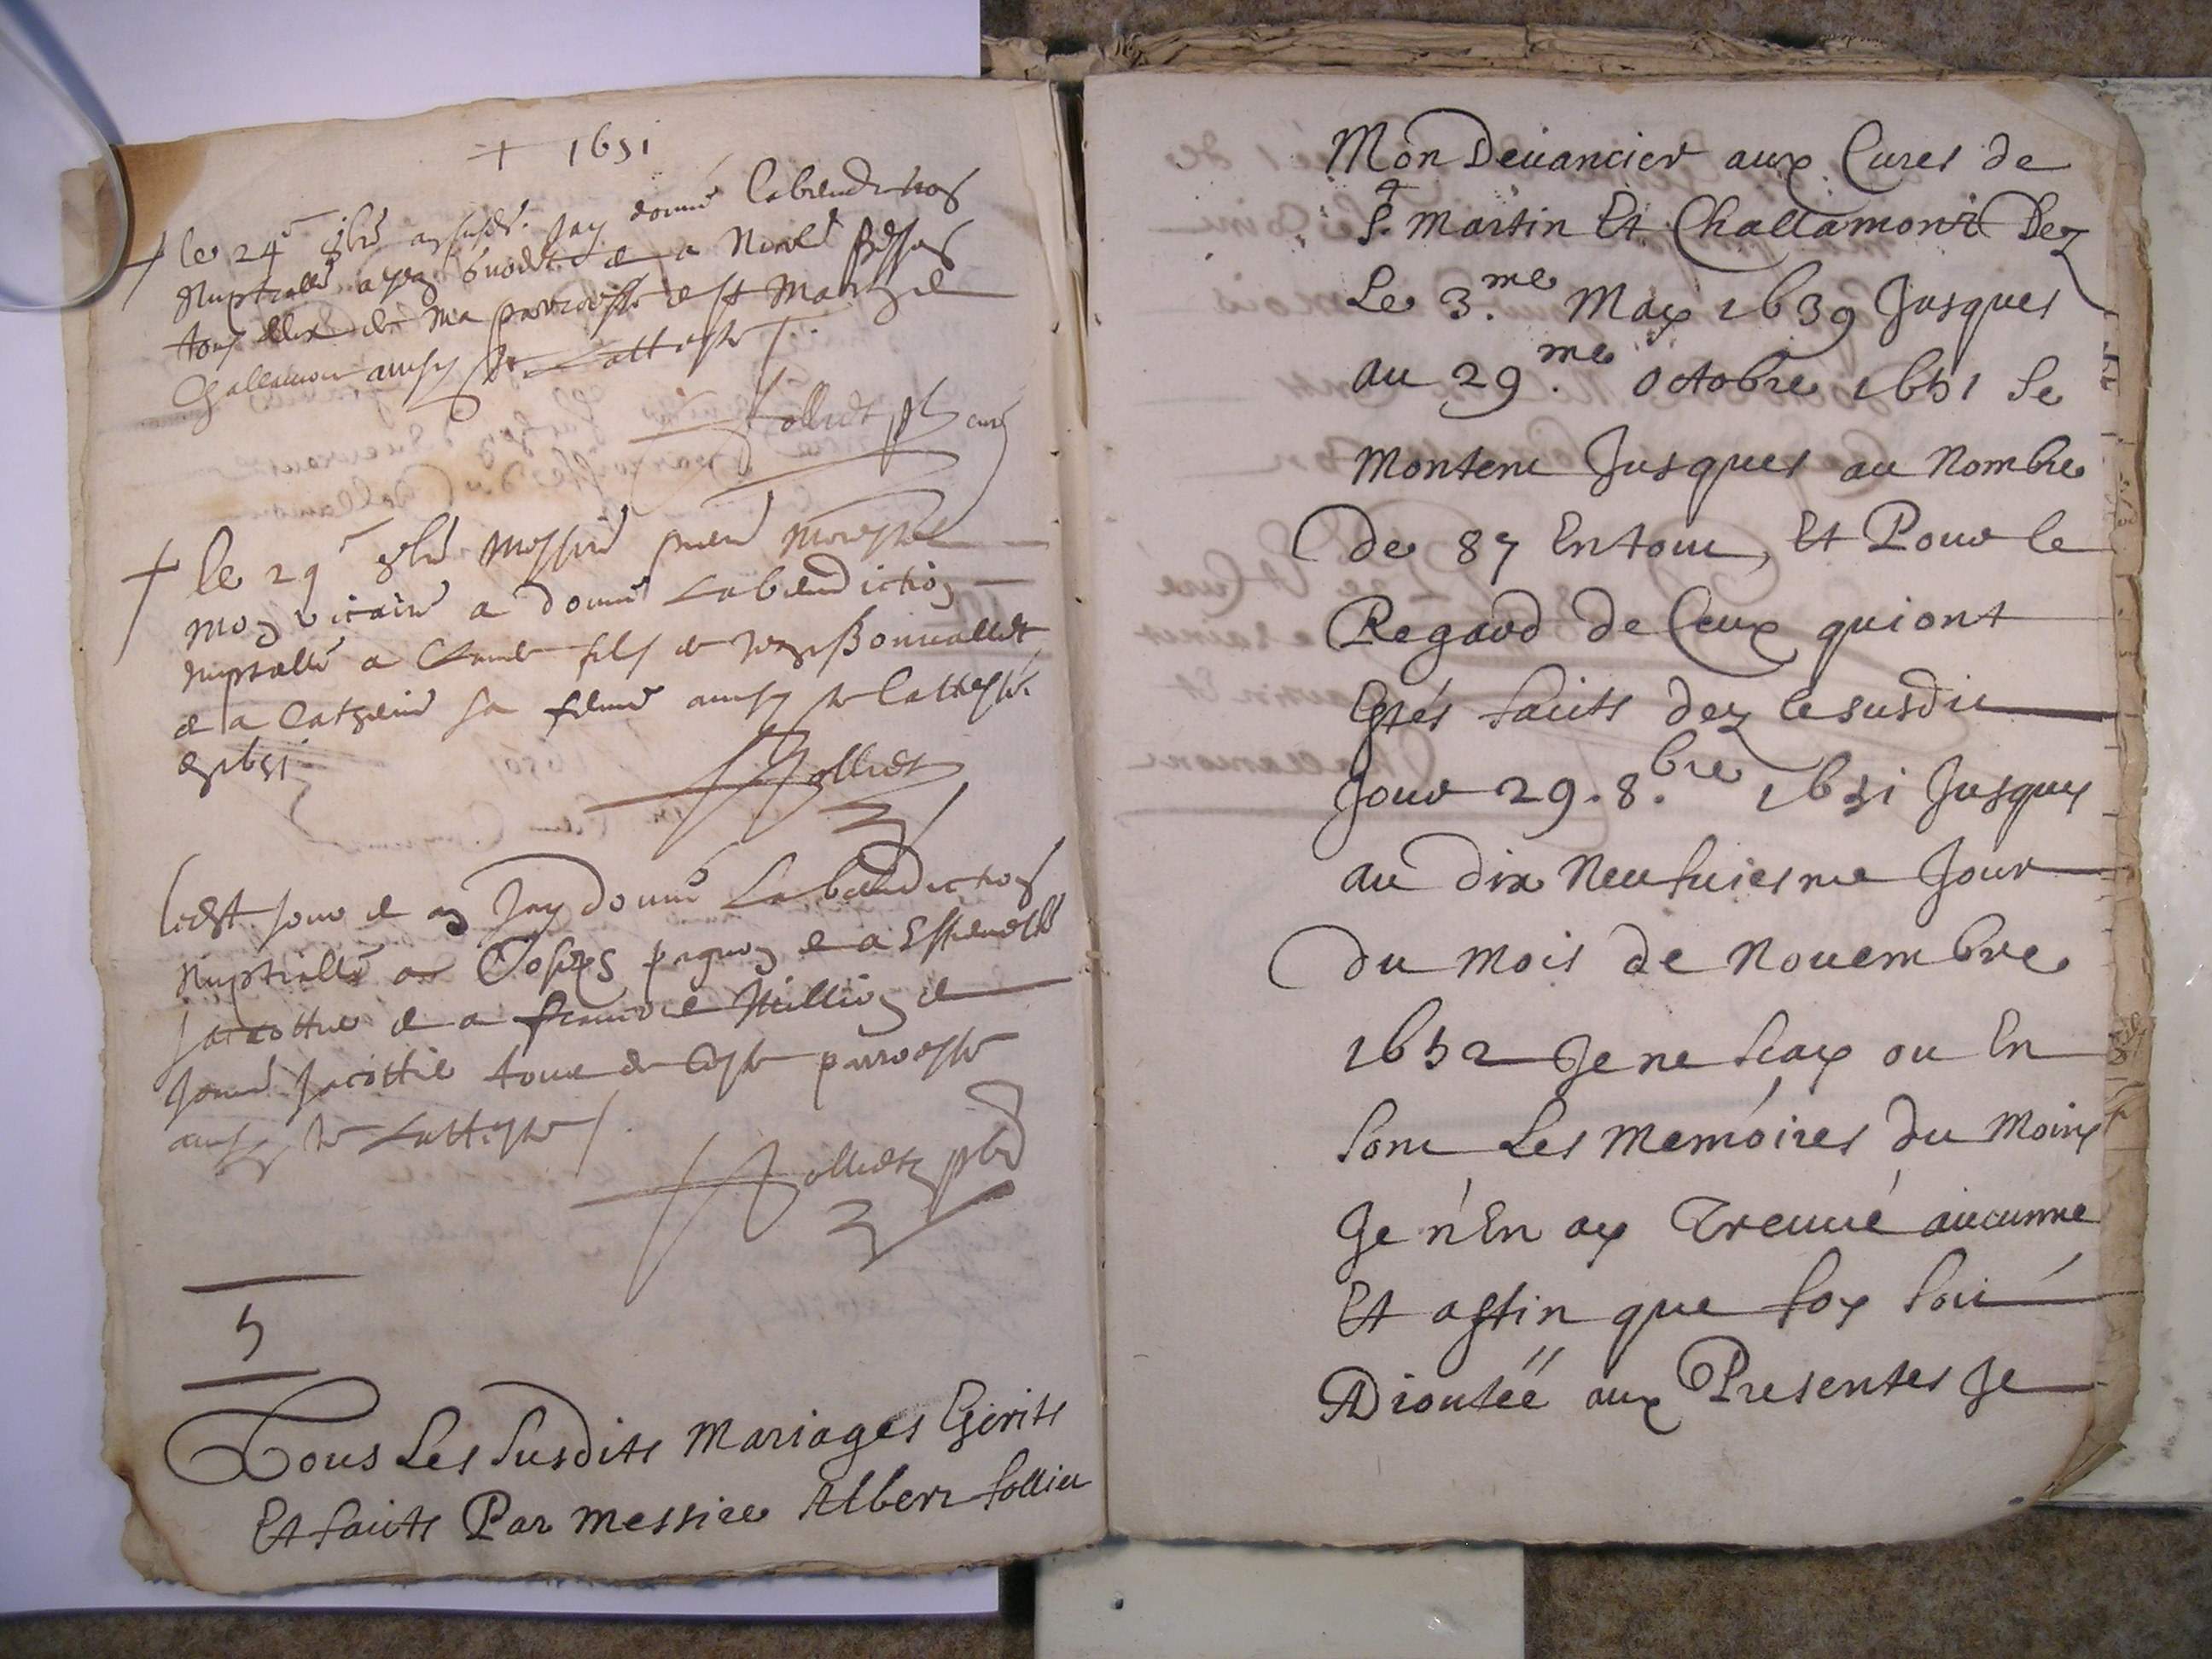 + 1651
le 24e 8bre an susdt. Jay donné la benediction
nuptialle a
tous deux de ma parroisse de st Martin de
Challamon ainsy je l'atteste
Folliet pbr curé
+ le 29e 8bre Messire
mon vicaire a donné la benediction
nuptialle a Claude fils de Bonnallet
et a Catherine sa femme ainsy je l'atteste
1651
Folliet
Ledst jour et an Jay donné la benediction
nuptialle a Joseph pagnon et a Estiennette
Jacottie et a francoise Million et
Jacottie tous de ceste parroesse
ainsy je l'atteste
Folliet pbr
5
Tous Les Susdits Mariages Escrits
Et faicts Par Messire Albert follieu
Mon Deuancier aux Cures de
St. Martin Et Challamont Dez
Le 3.me May 1639 Jusques
au 29.me Octobre 1651 Se
Montent Jusques au Nombre
De 87 En tout, Et Pour le
Regard de Ceux qui ont
Estés faicts dez le susdit
Jour 29. 8.bre 1651 Jusques
au dix Neufuiesme Jour
Du Mois de Nouembre
1652 Je ne scay ou En
sont Les Memoires du Moins
Je n'En ay Treuué aucunne
Et affin que foy soit
Adioutéé aux Presentes Je